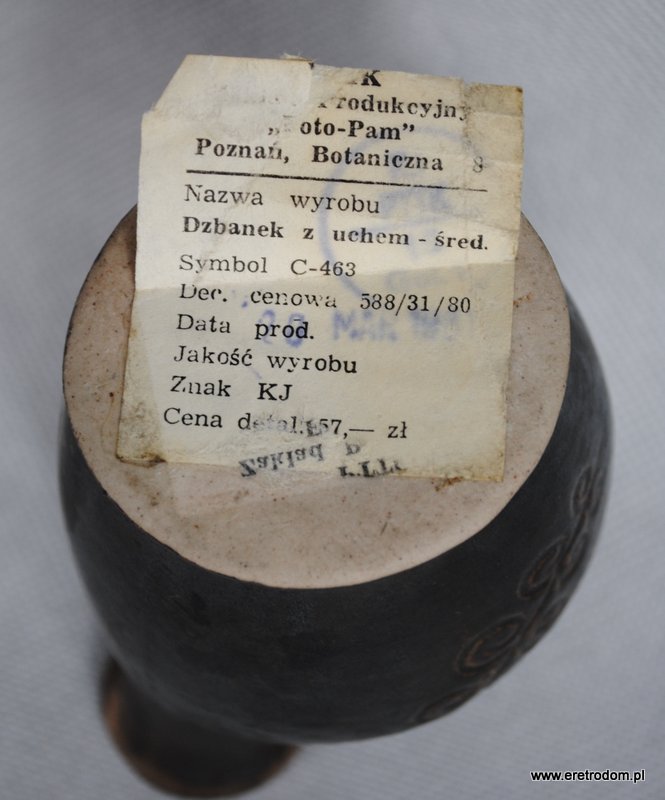 Produkcyjny
„Foto-Pam”
Poznań, Botaniczna 8
Nazwa wyrobu
Dzbanek z uchem - śred.
Symbol C-463
Dec. cenowa 588/31/80
Data prod.
Jakość wyrobu
Znak KJ
Cena detal. 57,— zł
Zakład
www.eretrodom.pl